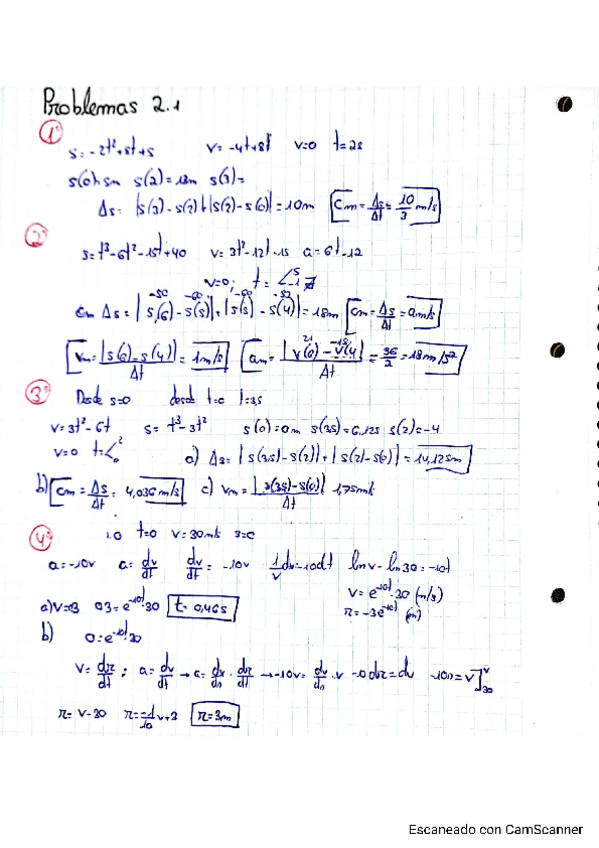 Problemas 2.1
1º
s = -2t²+8t+s v = -4t+8t v=0 t=2s
s(0)=5m s(2)=13m s(3)=
Δs = |s(3)-s(2)|+|s(2)-s(0)| = 10m Cm = Δs/Δt = 10/3 m/s
2º
s = t³-6t²-15t+40 v = 3t²-12t-15 a = 6t-12
v=0; t = 5 -1 ∄
-50 -60 -60 -52
Δs = |s(6)-s(5)|+|s(5)-s(4)| = 18m Cm = Δs/Δt = 9m/s
21 -15
Vm = |s(6)-s(4)|/Δt = 1m/s am = |v(6)-v(4)|/Δt = 36/2 = 18m/s²
3º
Desde s=0 desde t=0 t=3s
v = 3t²-6t s = t³-3t² s(0)=0m s(3,5)=6,125 s(2)=-4
v=0 t= 2 0 a) Δs = |s(3,5)-s(2)|+|s(2)-s(0)| = 14,125m
b) Cm = Δs/Δt = 4,036m/s c) Vm = |s(3,5)-s(0)|/Δt 1,75m/s
4º
t=0 v=30m/s s=0
a=-10v a= dv/dt dv/dt = -10v 1/v dv=-10dt lnv-ln30=-10t
v = e^-10t·30 (m/s)
a) v=3 03=e^-10t·30 t=0,46s r = -3e^-10t (m)
b) 0=e^-10t·30
v = dr/dt ; a = dv/dt → a = dv/dr · dr/dt → -10v = dv/dr · v -10dr=dv -10r = v]^v_30
r = v-30 r = -1/10 v+3 r=3m
Escaneado con CamScanner